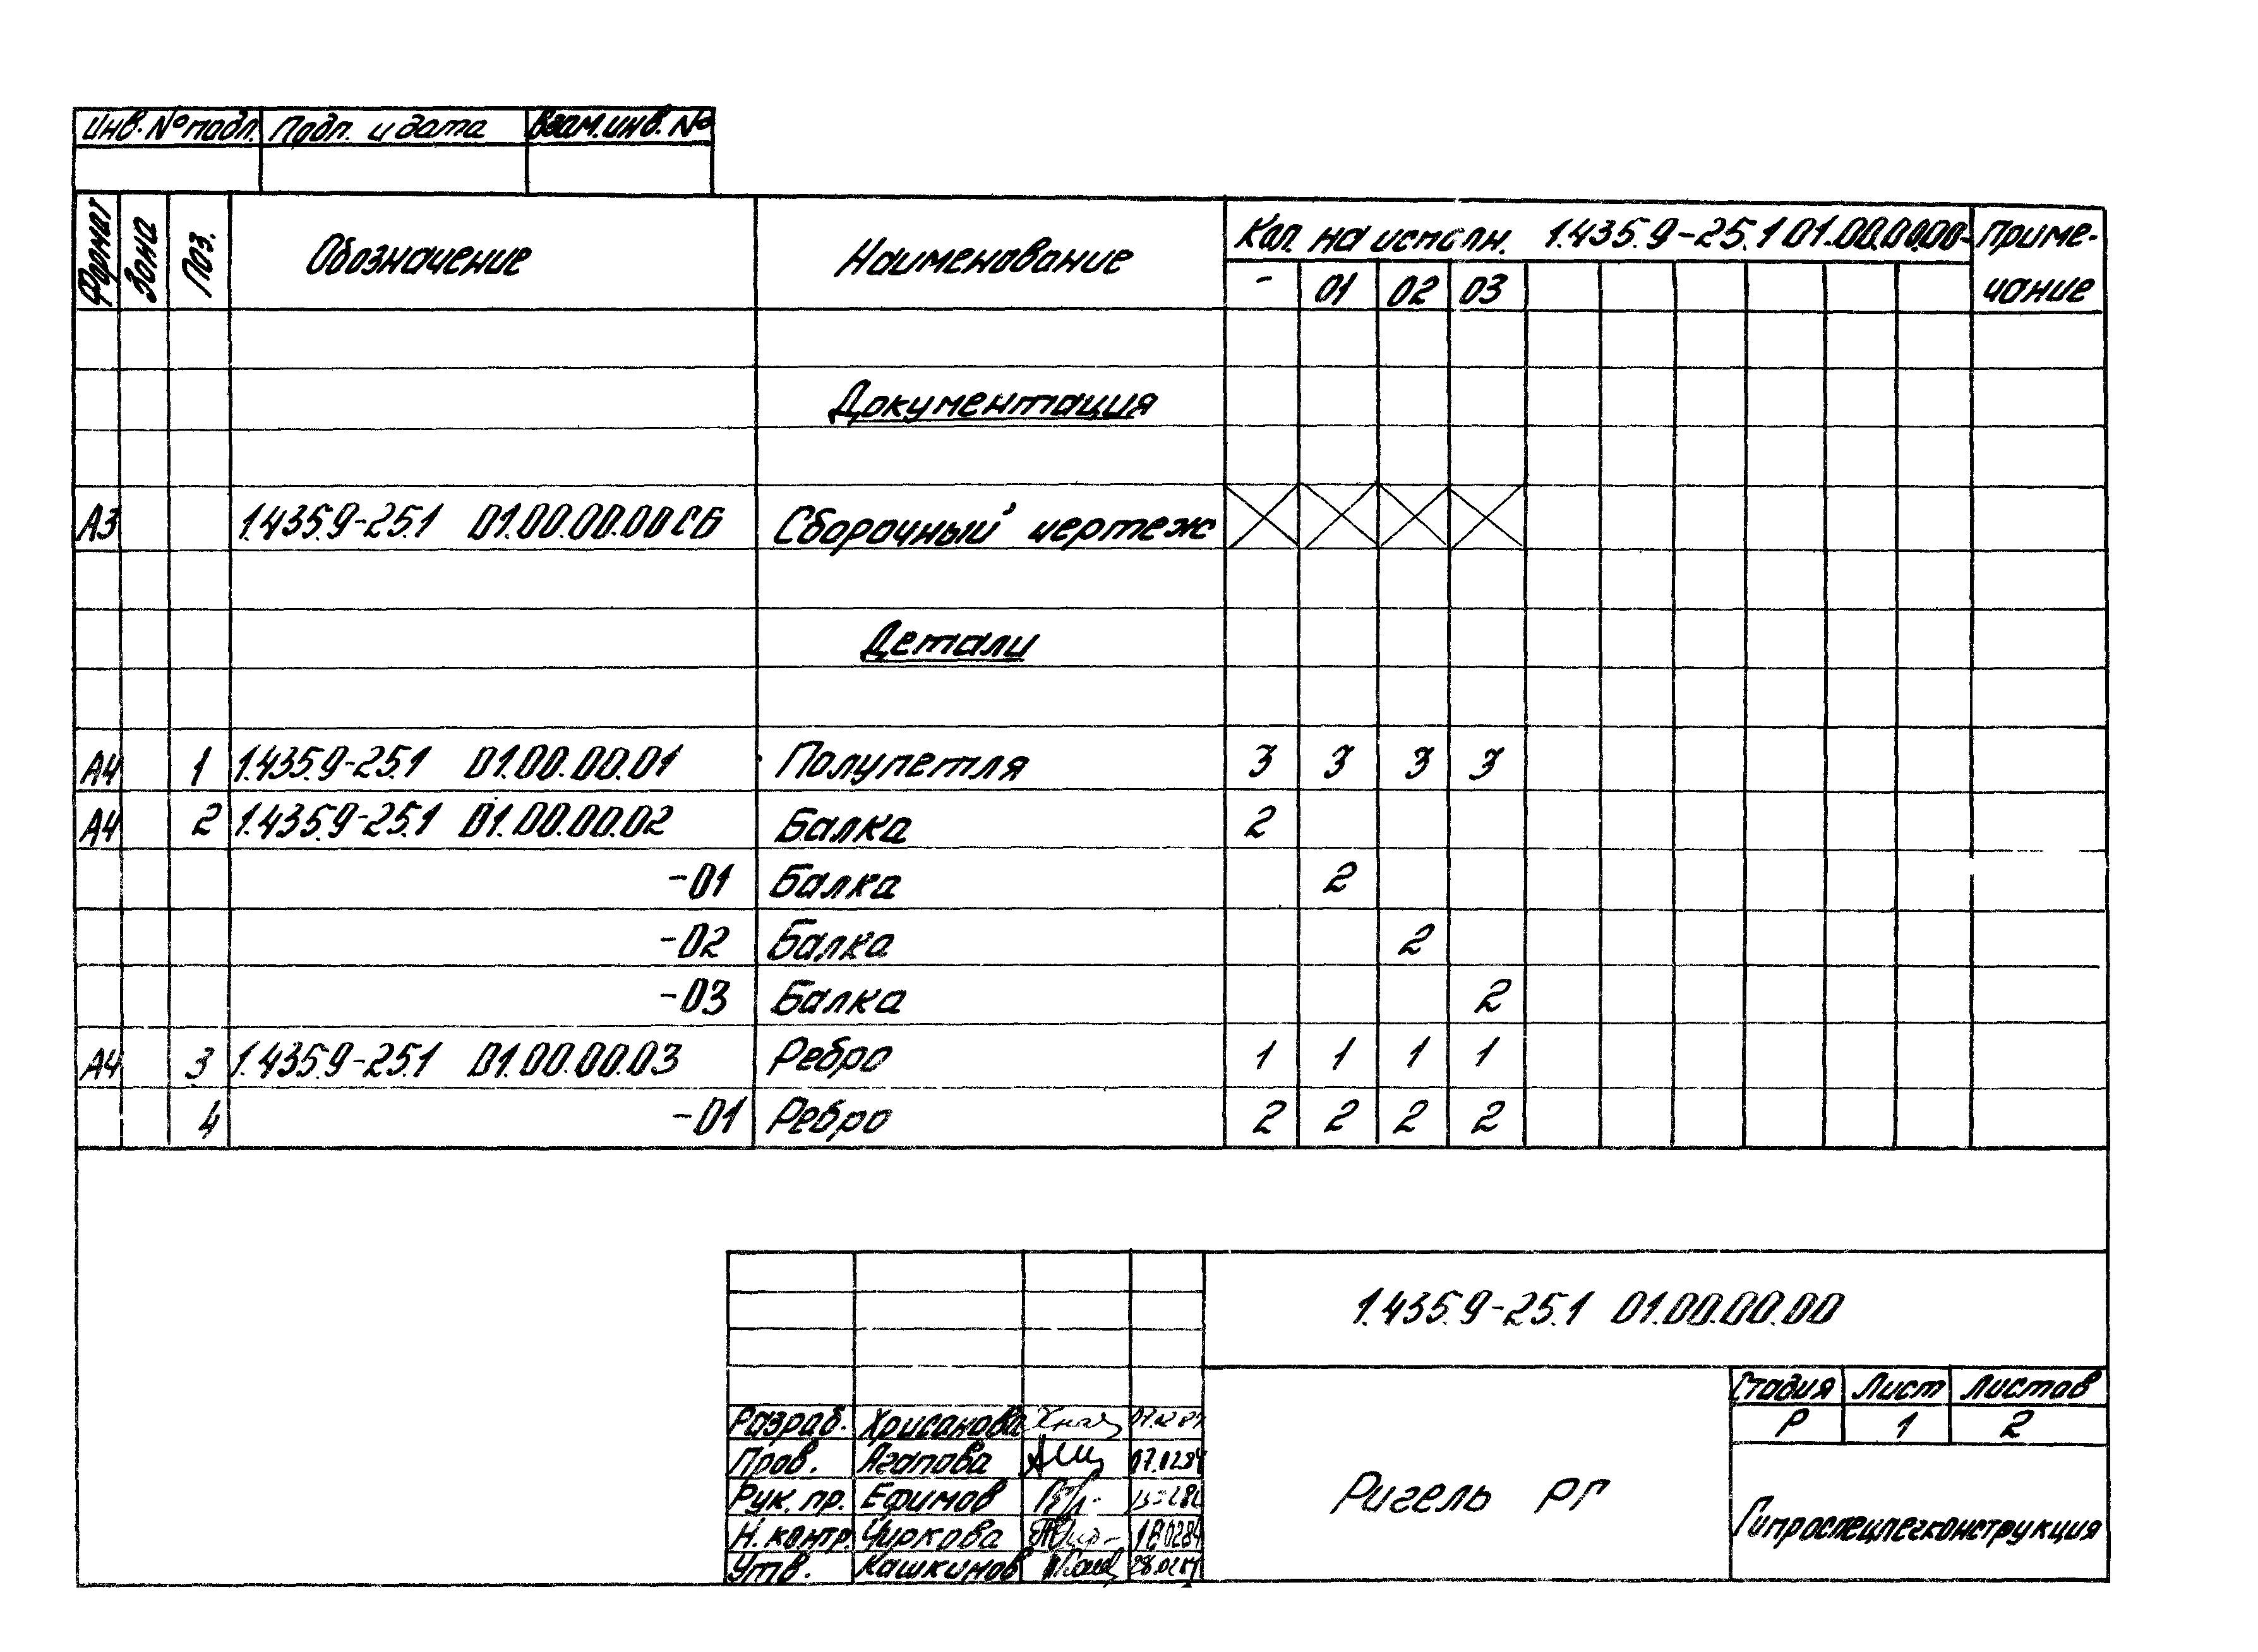 Инв. № подл. Подп. и дата Взам. инв. №
Формат Зона Поз. Обозначение Наименование Кол. на исполн. 1.435.9-25.1 01.00.00.00- Приме-
чание
- 01 02 03
Документация
А3 1.435.9-25.1 01.00.00.00 СБ Сборочный чертеж
Детали
А4 1 1.435.9-25.1 01.00.00.01 Полупетля 3 3 3 3
А4 2 1.435.9-25.1 01.00.00.02 Балка 2
-01 Балка 2
-02 Балка 2
-03 Балка 2
А4 3 1.435.9-25.1 01.00.00.03 Ребро 1 1 1 1
4 -01 Ребро 2 2 2 2
1.435.9-25.1 01.00.00.00
Стадия Лист Листов
Р 1 2
Разраб. Хрисанова
Пров. Агапова 07.02.84
Рук. пр. Ефимов
Н. контр. Чиркова
Утв. Кашкинов
Ригель РГ
Гипроспецлегконструкция